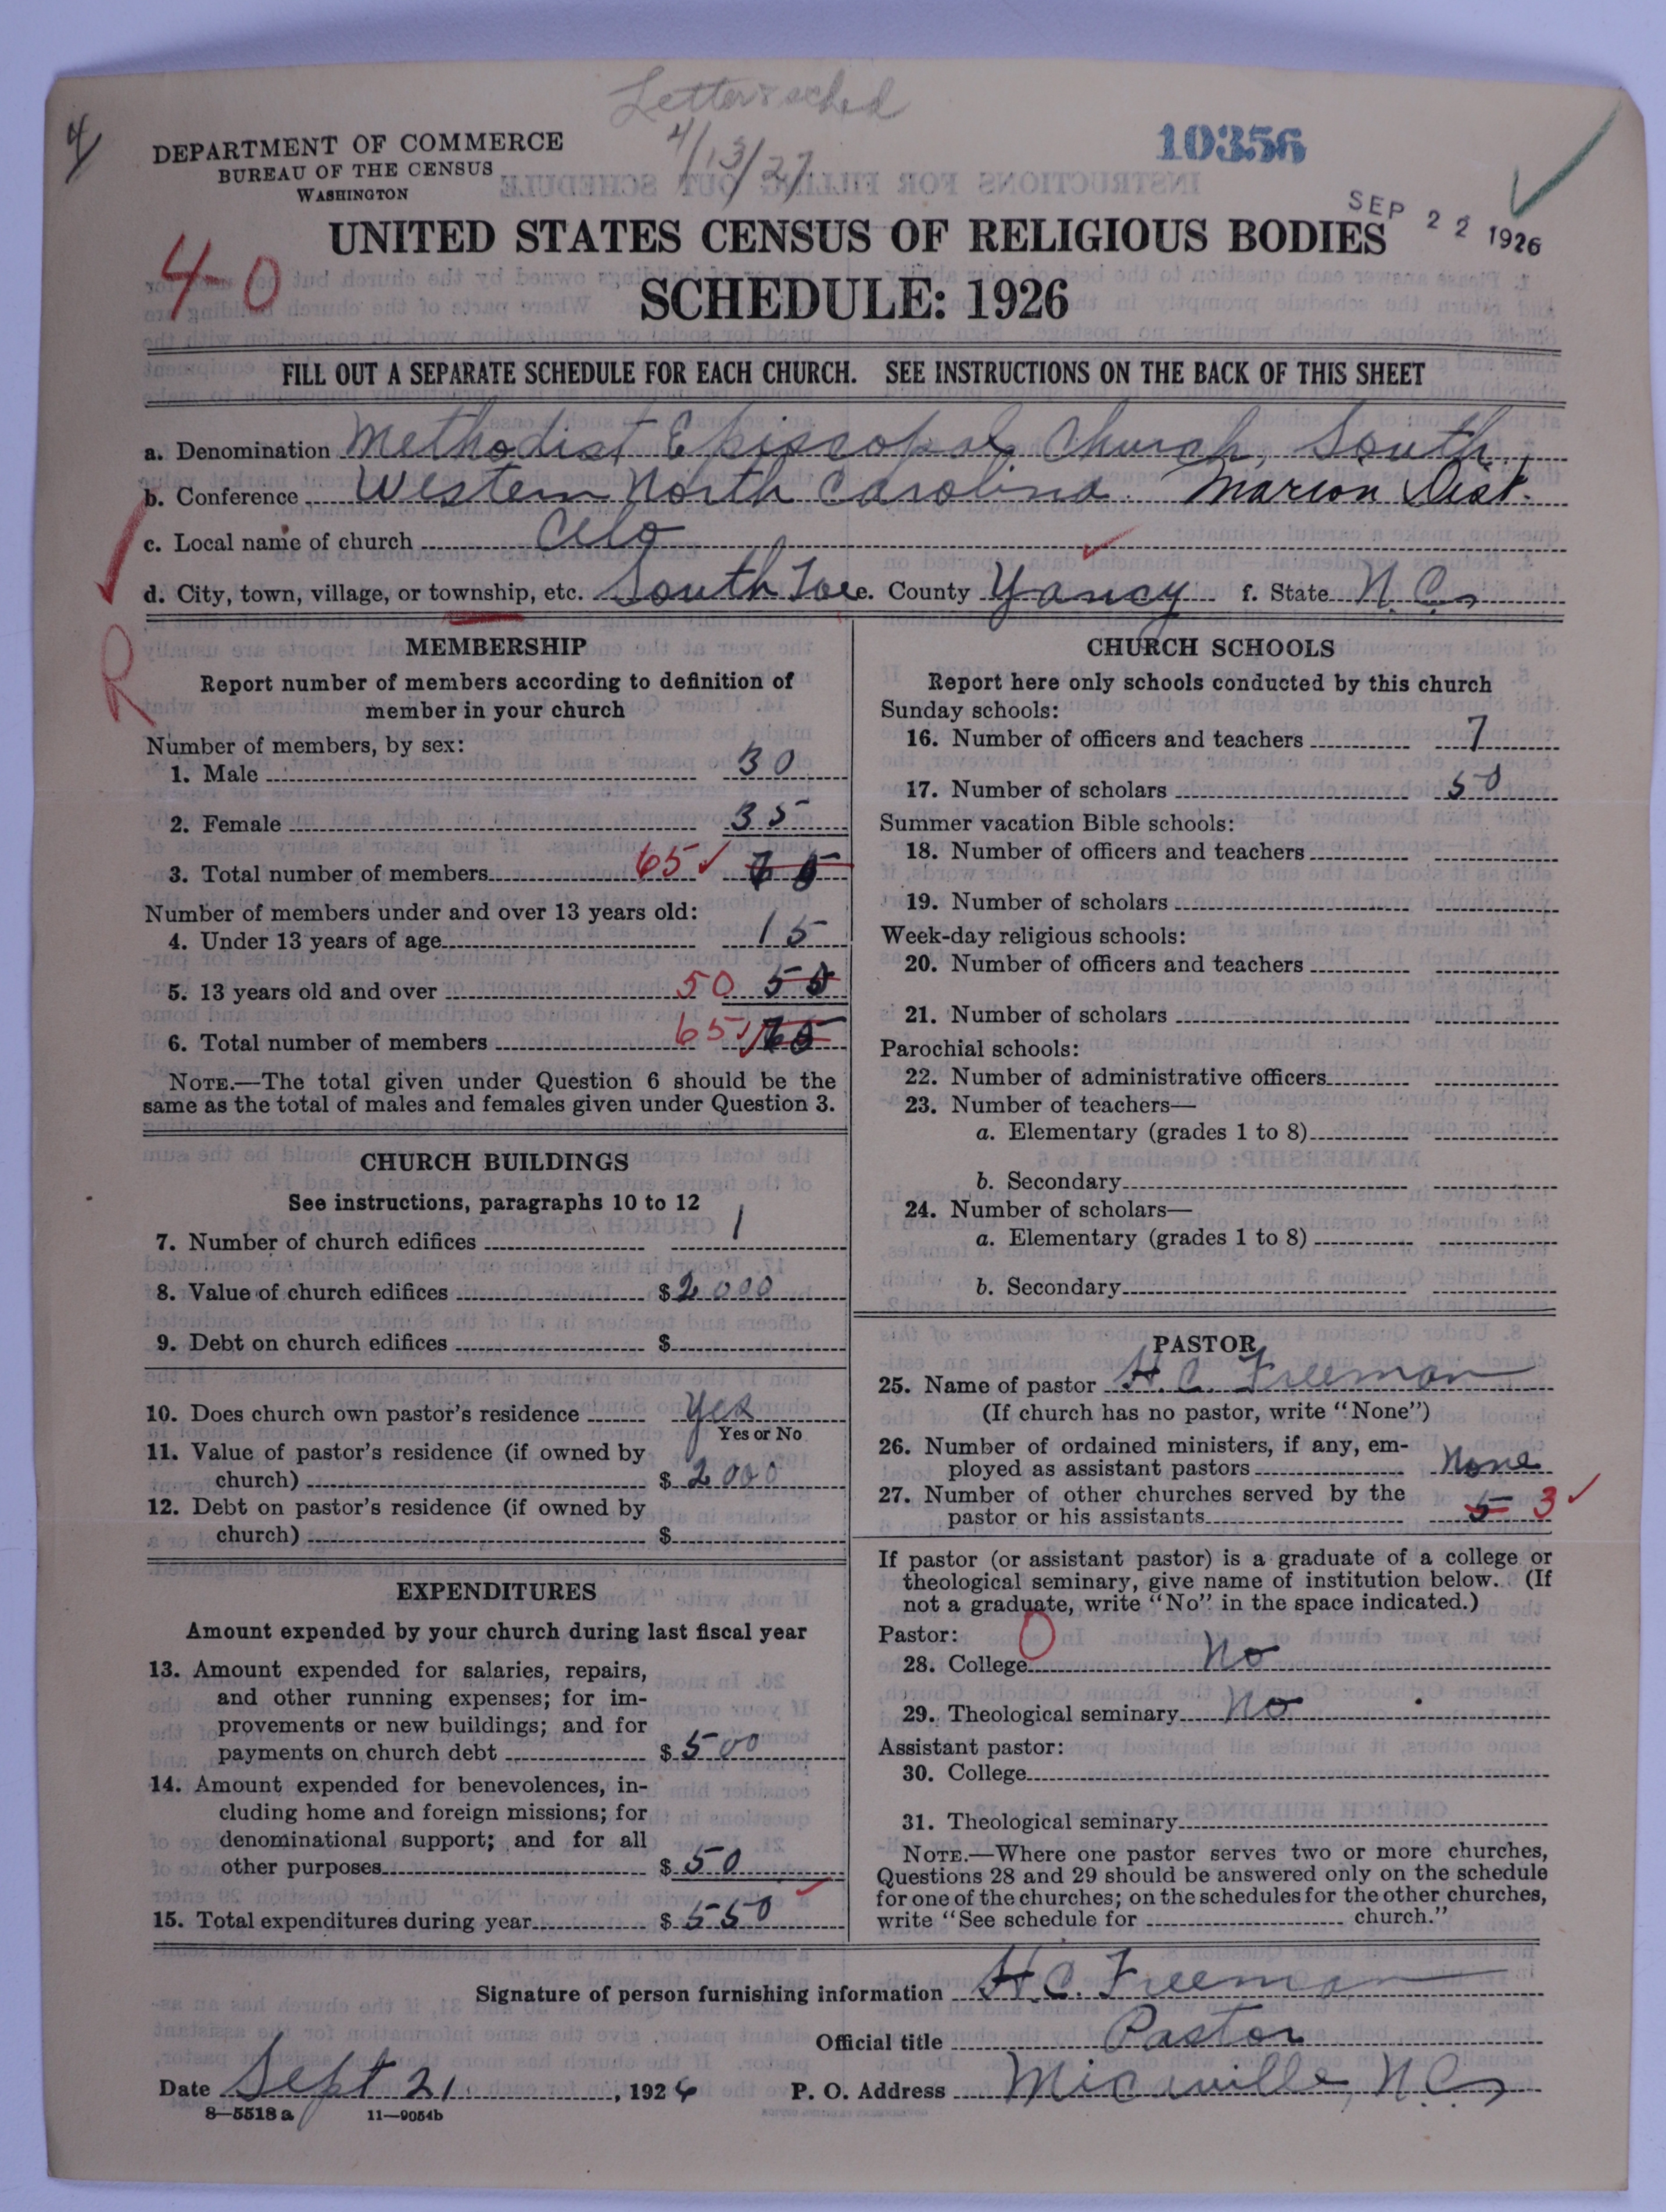 Letter & sched
4/13/27
4
DEPARTMENT OF COMMERCE
BUREAU OF THE CENSUS
WASHINGTON
10356
SEP 22 1926
4-0
UNITED STATES CENSUS OF RELIGIOUS BODIES
SCHEDULE: 1926
FILL OUT A SEPARATE SCHEDULE FOR EACH CHURCH. SEE INSTRUCTIONS ON THE BACK OF THIS SHEET
a. Denomination Methodist Episcopal Church, South
b. Conference Western North Carolina. Marion Dist.
c. Local name of church Celo
d. City, town, village, or township, etc. South Toe e. County Yancy f. State N.C.
R
MEMBERSHIP
Report number of members according to definition of
member in your church
Number of members, by sex:
1. Male 30
2. Female 35
3. Total number of members 65
Number of members under and over 13 years old:
4. Under 13 years of age 15
5. 13 years old and over 50
6. Total number of members 65
NOTE.—The total given under Question 6 should be the
same as the total of males and females given under Question 3.
CHURCH BUILDINGS
See instructions, paragraphs 10 to 12
7. Number of church edifices 1
8. Value of church edifices $2000
9. Debt on church edifices $
10. Does church own pastor's residence Yes
Yes or No
11. Value of pastor's residence (if owned by
church) $2000
12. Debt on pastor's residence (if owned by
church) $
EXPENDITURES
Amount expended by your church during last fiscal year
13. Amount expended for salaries, repairs,
and other running expenses; for im-
provements or new buildings; and for
payments on church debt $500
14. Amount expended for benevolences, in-
cluding home and foreign missions; for
denominational support; and for all
other purposes $50
15. Total expenditures during year $550
CHURCH SCHOOLS
Report here only schools conducted by this church
Sunday schools:
16. Number of officers and teachers 7
17. Number of scholars 50
Summer vacation Bible schools:
18. Number of officers and teachers
19. Number of scholars
Week-day religious schools:
20. Number of officers and teachers
21. Number of scholars
Parochial schools:
22. Number of administrative officers
23. Number of teachers—
a. Elementary (grades 1 to 8)
b. Secondary
24. Number of scholars—
a. Elementary (grades 1 to 8)
b. Secondary
PASTOR
25. Name of pastor H. C. Freeman
(If church has no pastor, write "None")
26. Number of ordained ministers, if any, em-
ployed as assistant pastors None
27. Number of other churches served by the
pastor or his assistants 5 3
If pastor (or assistant pastor) is a graduate of a college or
theological seminary, give name of institution below. (If
not a graduate, write "No" in the space indicated.)
Pastor: 0
28. College No
29. Theological seminary No
Assistant pastor:
30. College
31. Theological seminary
NOTE.—Where one pastor serves two or more churches,
Questions 28 and 29 should be answered only on the schedule
for one of the churches; on the schedules for the other churches,
write "See schedule for church."
Signature of person furnishing information H. C. Freeman
Official title Pastor
Date Sept 21, 1926 P. O. Address Micaville, N.C.
8—5518 a 11—9054b